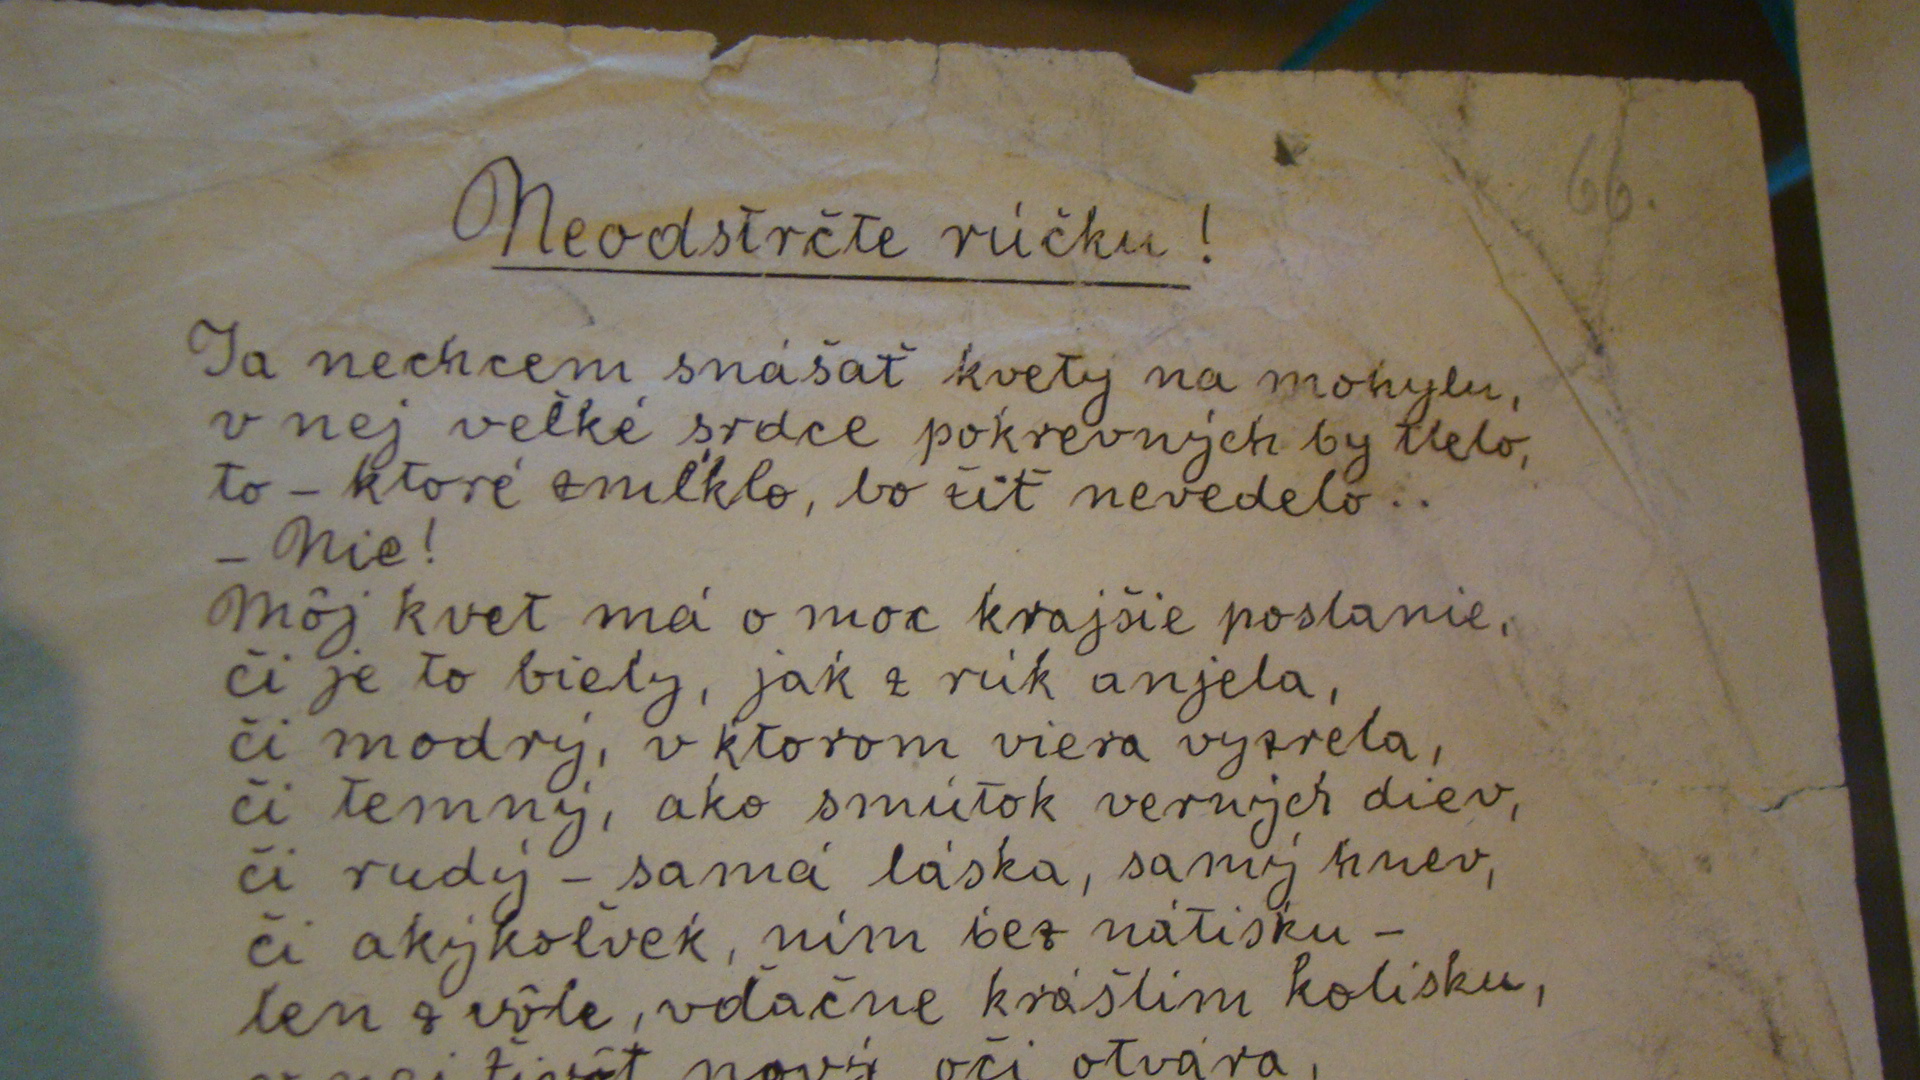 66.
Neodstrčte rúčku!
Ja nechcem snášať kvety na mohylu,
v nej veľké srdce pokrevných by tlelo,
to – ktoré zmĺklo, bo žiť nevedelo..
– Nie!
Môj kvet má o moc krajšie poslanie,
či je to biely, jak z rúk anjela,
či modrý, v ktorom viera vyzrela,
či temný, ako smútok verných diev,
či rudý – samá láska, samý hnev,
či akýkoľvek, ním bez nátisku –
len z vôle, vďačne krášlim kolísku,
v nej život nový oči otvára,